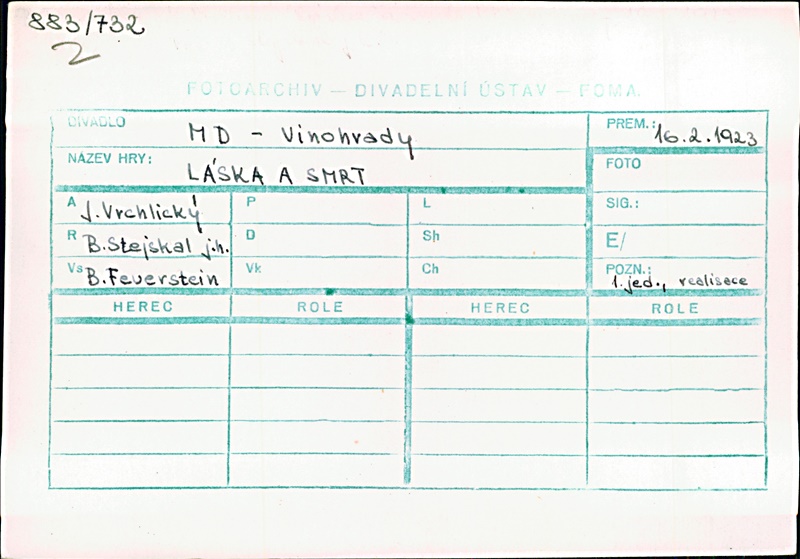 883/732
2
FOTOARCHIV — DIVADELNÍ ÚSTAV — FOMA
DIVADLO MD - Vinohrady PREM.: 16.2.1923
NÁZEV HRY: LÁSKA A SMRT FOTO
A J. Vrchlický P L SIG.:
R B. Stejskal j.h. D Sh E/
Vs B. Feuerstein Vk Ch POZN.: 1. jed., realisace
HEREC ROLE HEREC ROLE